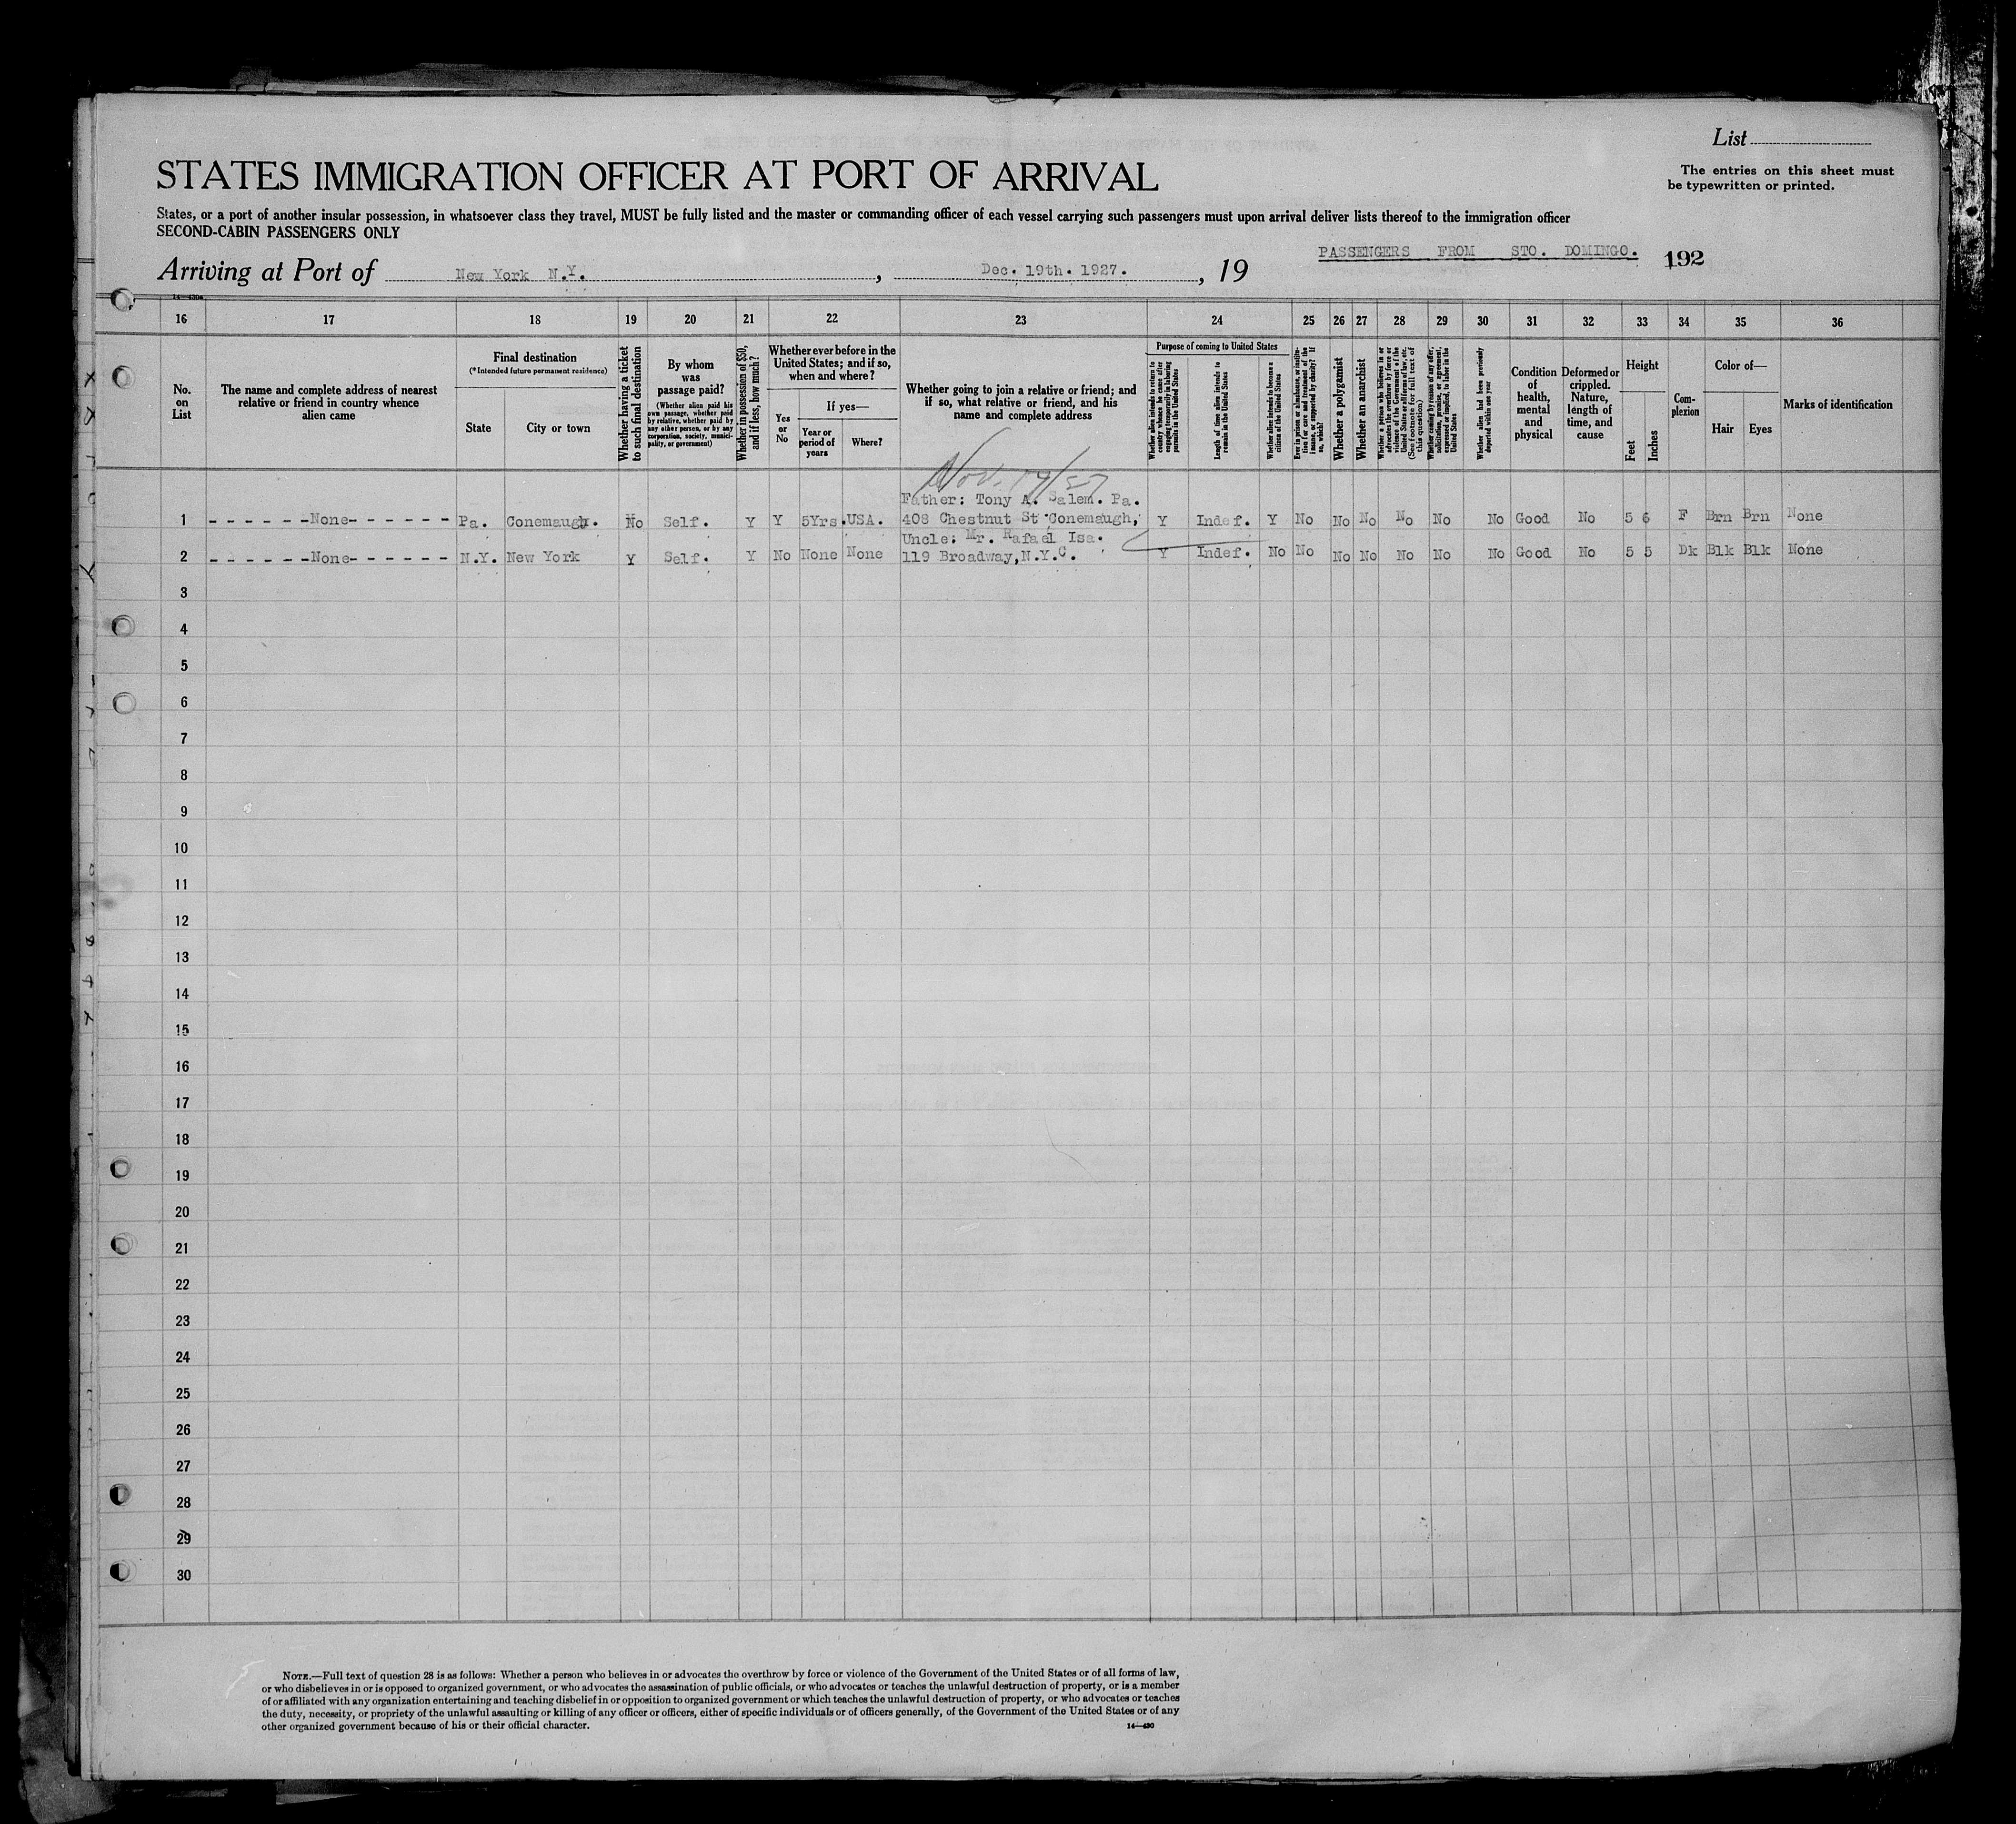 List
STATES IMMIGRATION OFFICER AT PORT OF ARRIVAL
The entries on this sheet must
be typewritten or printed.
States, or a port of another insular possession, in whatsoever class they travel, MUST be fully listed and the master or commanding officer of each vessel carrying such passengers must upon arrival deliver lists thereof to the immigration officer
SECOND-CABIN PASSENGERS ONLY
PASSENGERS FROM STO. DOMINGO. 192
Arriving at Port of New York N.Y. , Dec. 19th. 1927. , 19
14—430a
16 17 18 19 20 21 22 23 24 25 26 27 28 29 30 31 32 33 34 35 36
No. on List
The name and complete address of nearest relative or friend in country whence alien came
Final destination
(*Intended future permanent residence)
State
City or town
Whether having a ticket to such final destination
By whom was passage paid?
(Whether alien paid his own passage, whether paid by relative, whether paid by any other person, or by any corporation, society, municipality, or government)
Whether in possession of $50, and if less, how much?
Whether ever before in the United States; and if so, when and where?
Yes or No
If yes—
Year or period of years
Where?
Whether going to join a relative or friend; and if so, what relative or friend, and his name and complete address
Purpose of coming to United States
Whether alien intends to return to country whence he came after engaging temporarily in laboring pursuits in the United States
Length of time alien intends to remain in the United States
Whether alien intends to become a citizen of the United States
Ever in prison or almshouse, or institution for care and treatment of the insane, or supported by charity? If so, which?
Whether a polygamist
Whether an anarchist
Whether a person who believes in or advocates the overthrow by force or violence of the Government of the United States or all forms of law, etc. (See footnote for full text of this question)
Whether coming by reason of any offer, solicitation, promise, or agreement, expressed or implied, to labor in the United States
Whether alien had been previously deported within one year
Condition of health, mental and physical
Deformed or crippled. Nature, length of time, and cause
Height
Feet
Inches
Complexion
Color of—
Hair
Eyes
Marks of identification
Nov. 19/27
Father: Tony A. Salem. Pa.
1 - - - - - -None- - - - - - Pa. Conemaugh. No Self. Y Y 5Yrs. USA. 408 Chestnut St Conemaugh, Y Indef. Y No No No No No No Good No 5 6 F Brn Brn None
Uncle: Mr. Rafael Isa.
2 - - - - - -None- - - - - - N.Y. New York Y Self. Y No None None 119 Broadway,N.Y.C. Y Indef. No No No No No No No Good No 5 5 Dk Blk Blk None
3
4
5
6
7
8
9
10
11
12
13
14
15
16
17
18
19
20
21
22
23
24
25
26
27
28
29
30
NOTE.—Full text of question 28 is as follows: Whether a person who believes in or advocates the overthrow by force or violence of the Government of the United States or of all forms of law,
or who disbelieves in or is opposed to organized government, or who advocates the assassination of public officials, or who advocates or teaches the unlawful destruction of property, or is a member
of or affiliated with any organization entertaining and teaching disbelief in or opposition to organized government or which teaches the unlawful destruction of property, or who advocates or teaches
the duty, necessity, or propriety of the unlawful assaulting or killing of any officer or officers, either of specific individuals or of officers generally, of the Government of the United States or of any
other organized government because of his or their official character.
14—430